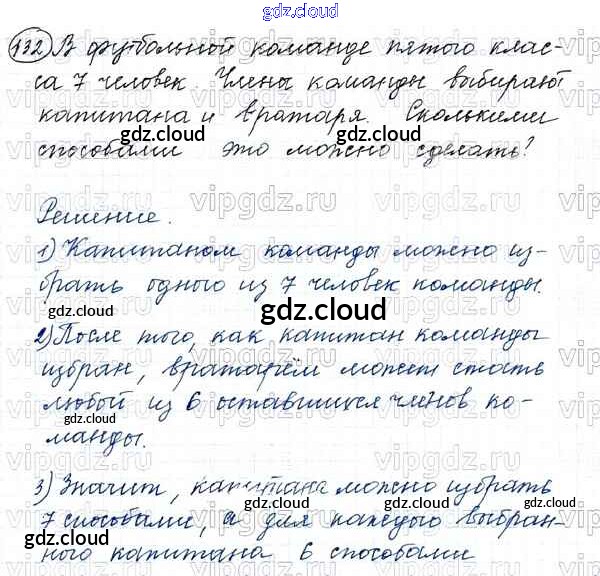 gdz.cloud
132) В футбольной команде пятого клас-
са 7 человек. Члены команды выбирают
капитана и вратаря. Сколькими
способами это можно сделать?
Решение.
1) Капитаном команды можно из-
брать одного из 7 человек команды.
2) После того, как капитан команды
избран, вратарём может стать
любой из 6 оставшихся членов ко-
манды.
3) Значит, капитана можно избрать
7 способами, а для каждого выбран-
ного капитана 6 способами